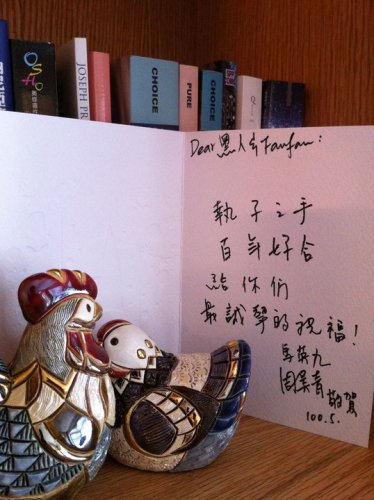 OSHO
JOSEPH
CHOICE
PURE
CHOICE
Dear 黑人&Fanfan:
執子之手
百年好合
給你們
最誠摯的祝福!
馬英九
周美青
敬賀
100.5.